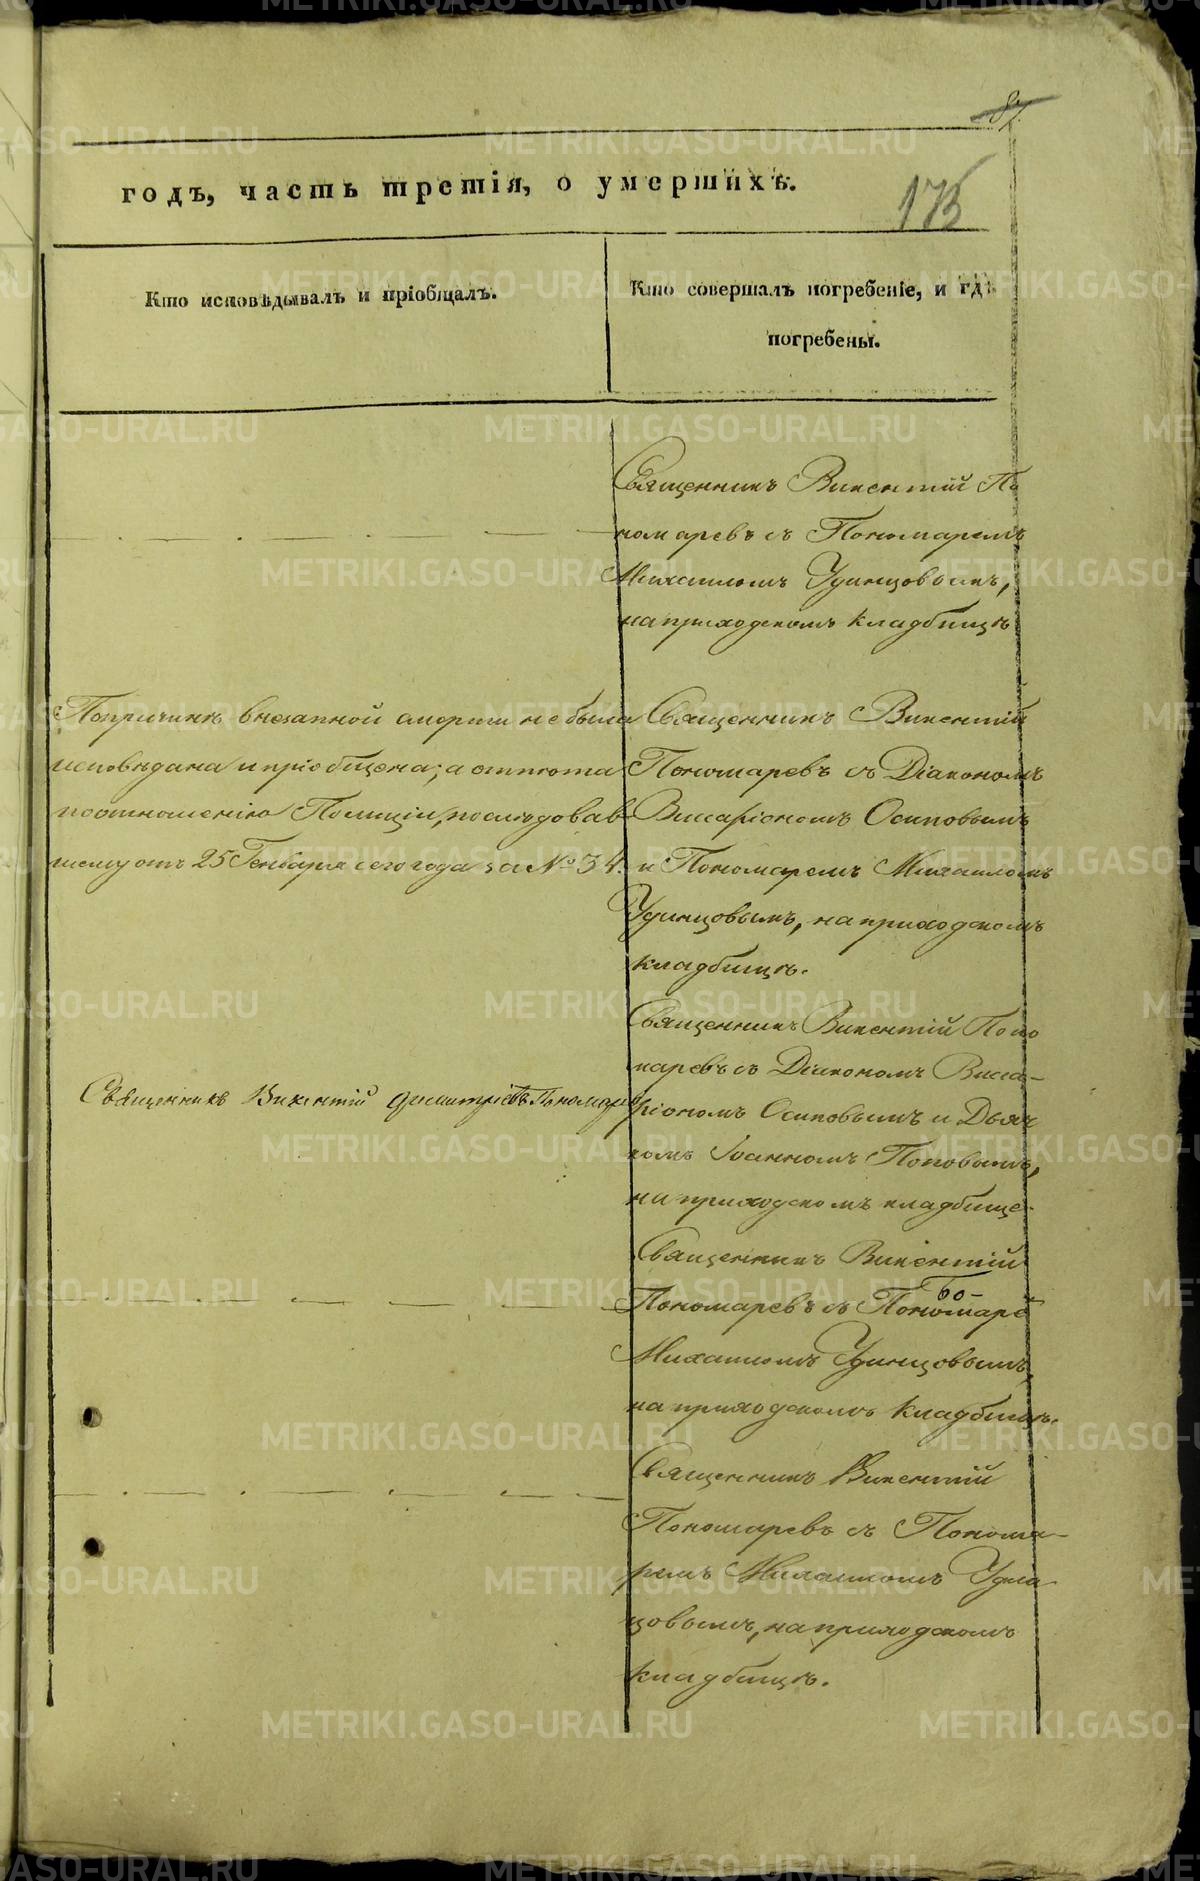 87
годъ, часть третія, о умершихъ.
175
Кто исповѣдывалъ и пріобщалъ.
Кто совершалъ погребеніе, и гдѣ
погребены.
Священникъ Викентій По
номаревъ съ Пономаремъ
Михаиломъ Удинцовымъ,
на приходскомъ кладбищѣ
По причинѣ внезапной смерти не была
исповѣдана и пріобщена; а отпѣта
по отношенію Полиціи, послѣдовав
шему отъ 25 Генваря сего года за № 34.
Священникъ Викентій
Пономаревъ съ Діакономъ
Висаріономъ Осиповымъ
и Пономаремъ Михаиломъ
Удинцовымъ, на приходскомъ
кладбищѣ.
Священникъ Викентій Димитріевъ Пономарев
Священникъ Викентій Поно
маревъ съ Діакономъ Висса-
ріономъ Осиповымъ и Дьяч
комъ Іоанномъ Поповымъ,
на приходскомъ кладбище
Священникъ Викентій
Пономаревъ съ Пономаре
Михаиломъ Удинцовымъ,
на приходскомъ кладбищѣ.
Священникъ Викентій
Пономаревъ съ Понома-
ремъ Михаиломъ Удин
цовымъ, на приходскомъ
кладбищѣ.
METRIKI.GASO-URAL.RU